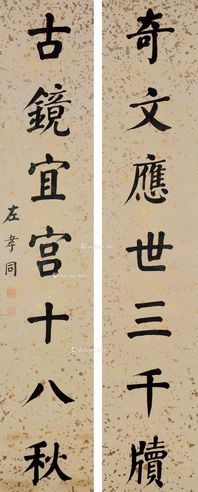 奇文應世三千牘
古鏡宜官十八秋
左孝同